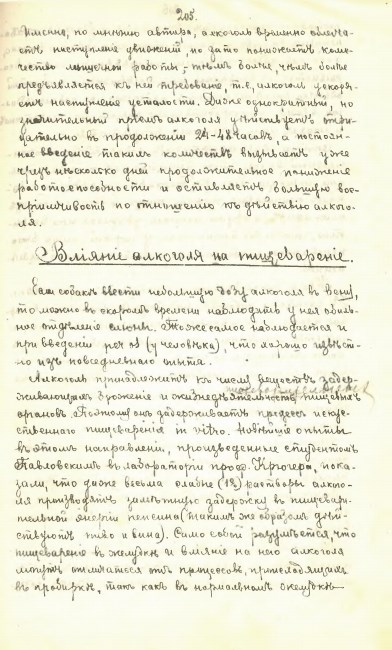 205.
Именно, по мнѣнію автора, алкоголь временно облегча-
етъ наступленіе движеній, но зато понижаетъ коли-
чество мышечной работы; тѣмъ болѣе, чѣмъ болѣе
предъявляется къ ней требованіе, т.е. алкоголь ускоря-
етъ наступленіе усталости. Даже однократный, но
значительный пріемъ алкоголя дѣйствуетъ отри-
цательно въ продолженіи 24-48 часовъ, а постоян-
ное введеніе такихъ количествъ вызываетъ уже
черезъ нѣсколько дней продолжительное пониженіе
работоспособности и оставляетъ большую вос-
пріимчивость по отношенію къ дѣйствію алкого-
ля.
Вліяніе алкоголя на пищевареніе.
Если собакѣ ввести небольшую дозу алкоголя въ вену,
то можно въ скоромъ времени наблюдать у нея обиль-
ное отдѣленіе слюны. Тоже самое наблюдается и
при введеніи per os (у человѣка), что хорошо извѣст-
но изъ повседневнаго опыта.
Алкоголь принадлежитъ къ числу веществъ, задер-
живающихъ броженіе и жизнедѣятельность
органовъ. Поэтому онъ задерживаетъ процессъ искус-
ственнаго пищеваренія in vitro. Новѣйшіе опыты
въ этомъ направленіи, произведенные студентомъ
Павловскимъ въ лабораторіи проф. Крюгера, пока-
зали, что даже весьма слабые (1%) растворы алкого-
ля производятъ замѣтную задержку въ пищевари-
тельной энергіи пепсина (такимъ же образомъ дѣй-
ствуютъ пиво и вина). Само собой разумѣется, что
пищевареніе въ желудкѣ и вліяніе на него алкоголя
могутъ отличаться отъ процессовъ, происходящихъ
въ пробиркѣ, такъ какъ въ нормальномъ желудкѣ